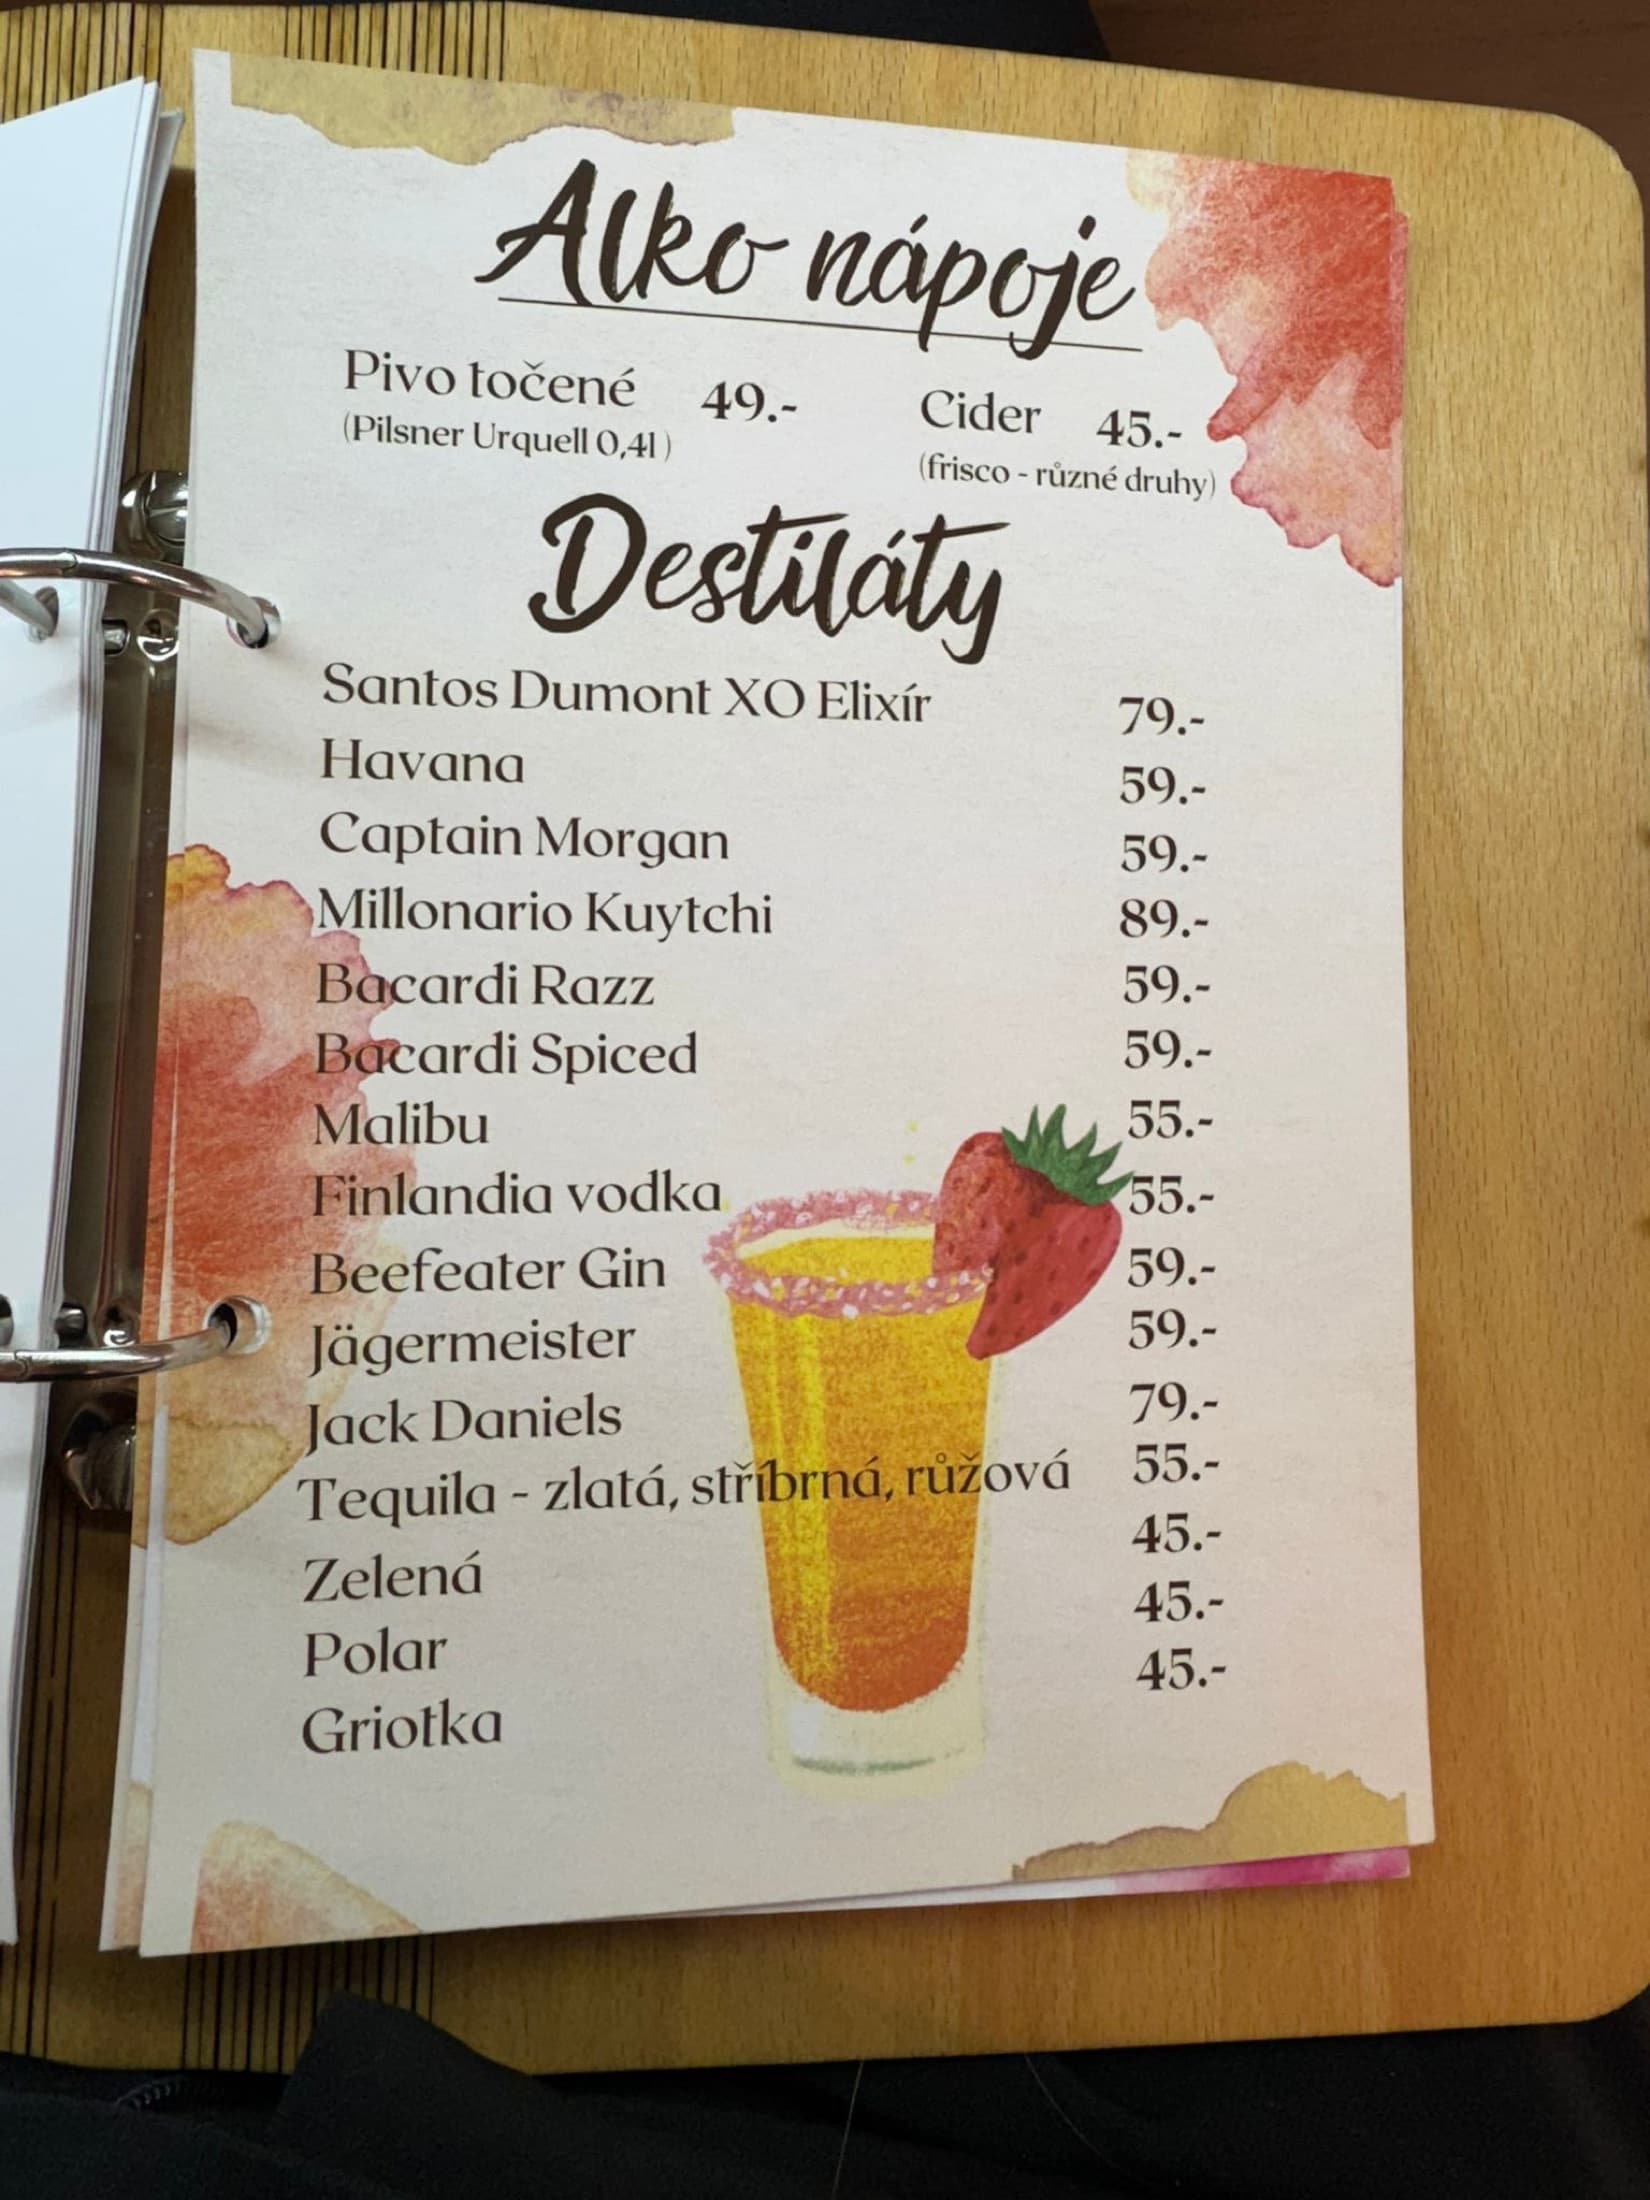 Alko nápoje
Pivo točené 49.- Cider 45.-
(Pilsner Urquell 0,4l) (frisco - různé druhy)
Destiláty
Santos Dumont XO Elixír 79.-
Havana 59.-
Captain Morgan 59.-
Millonario Kuytchi 89.-
Bacardi Razz 59.-
Bacardi Spiced 59.-
Malibu 55.-
Finlandia vodka 55.-
Beefeater Gin 59.-
Jägermeister 59.-
Jack Daniels 79.-
Tequila - zlatá, stříbrná, růžová 55.-
Zelená 45.-
Polar 45.-
Griotka 45.-